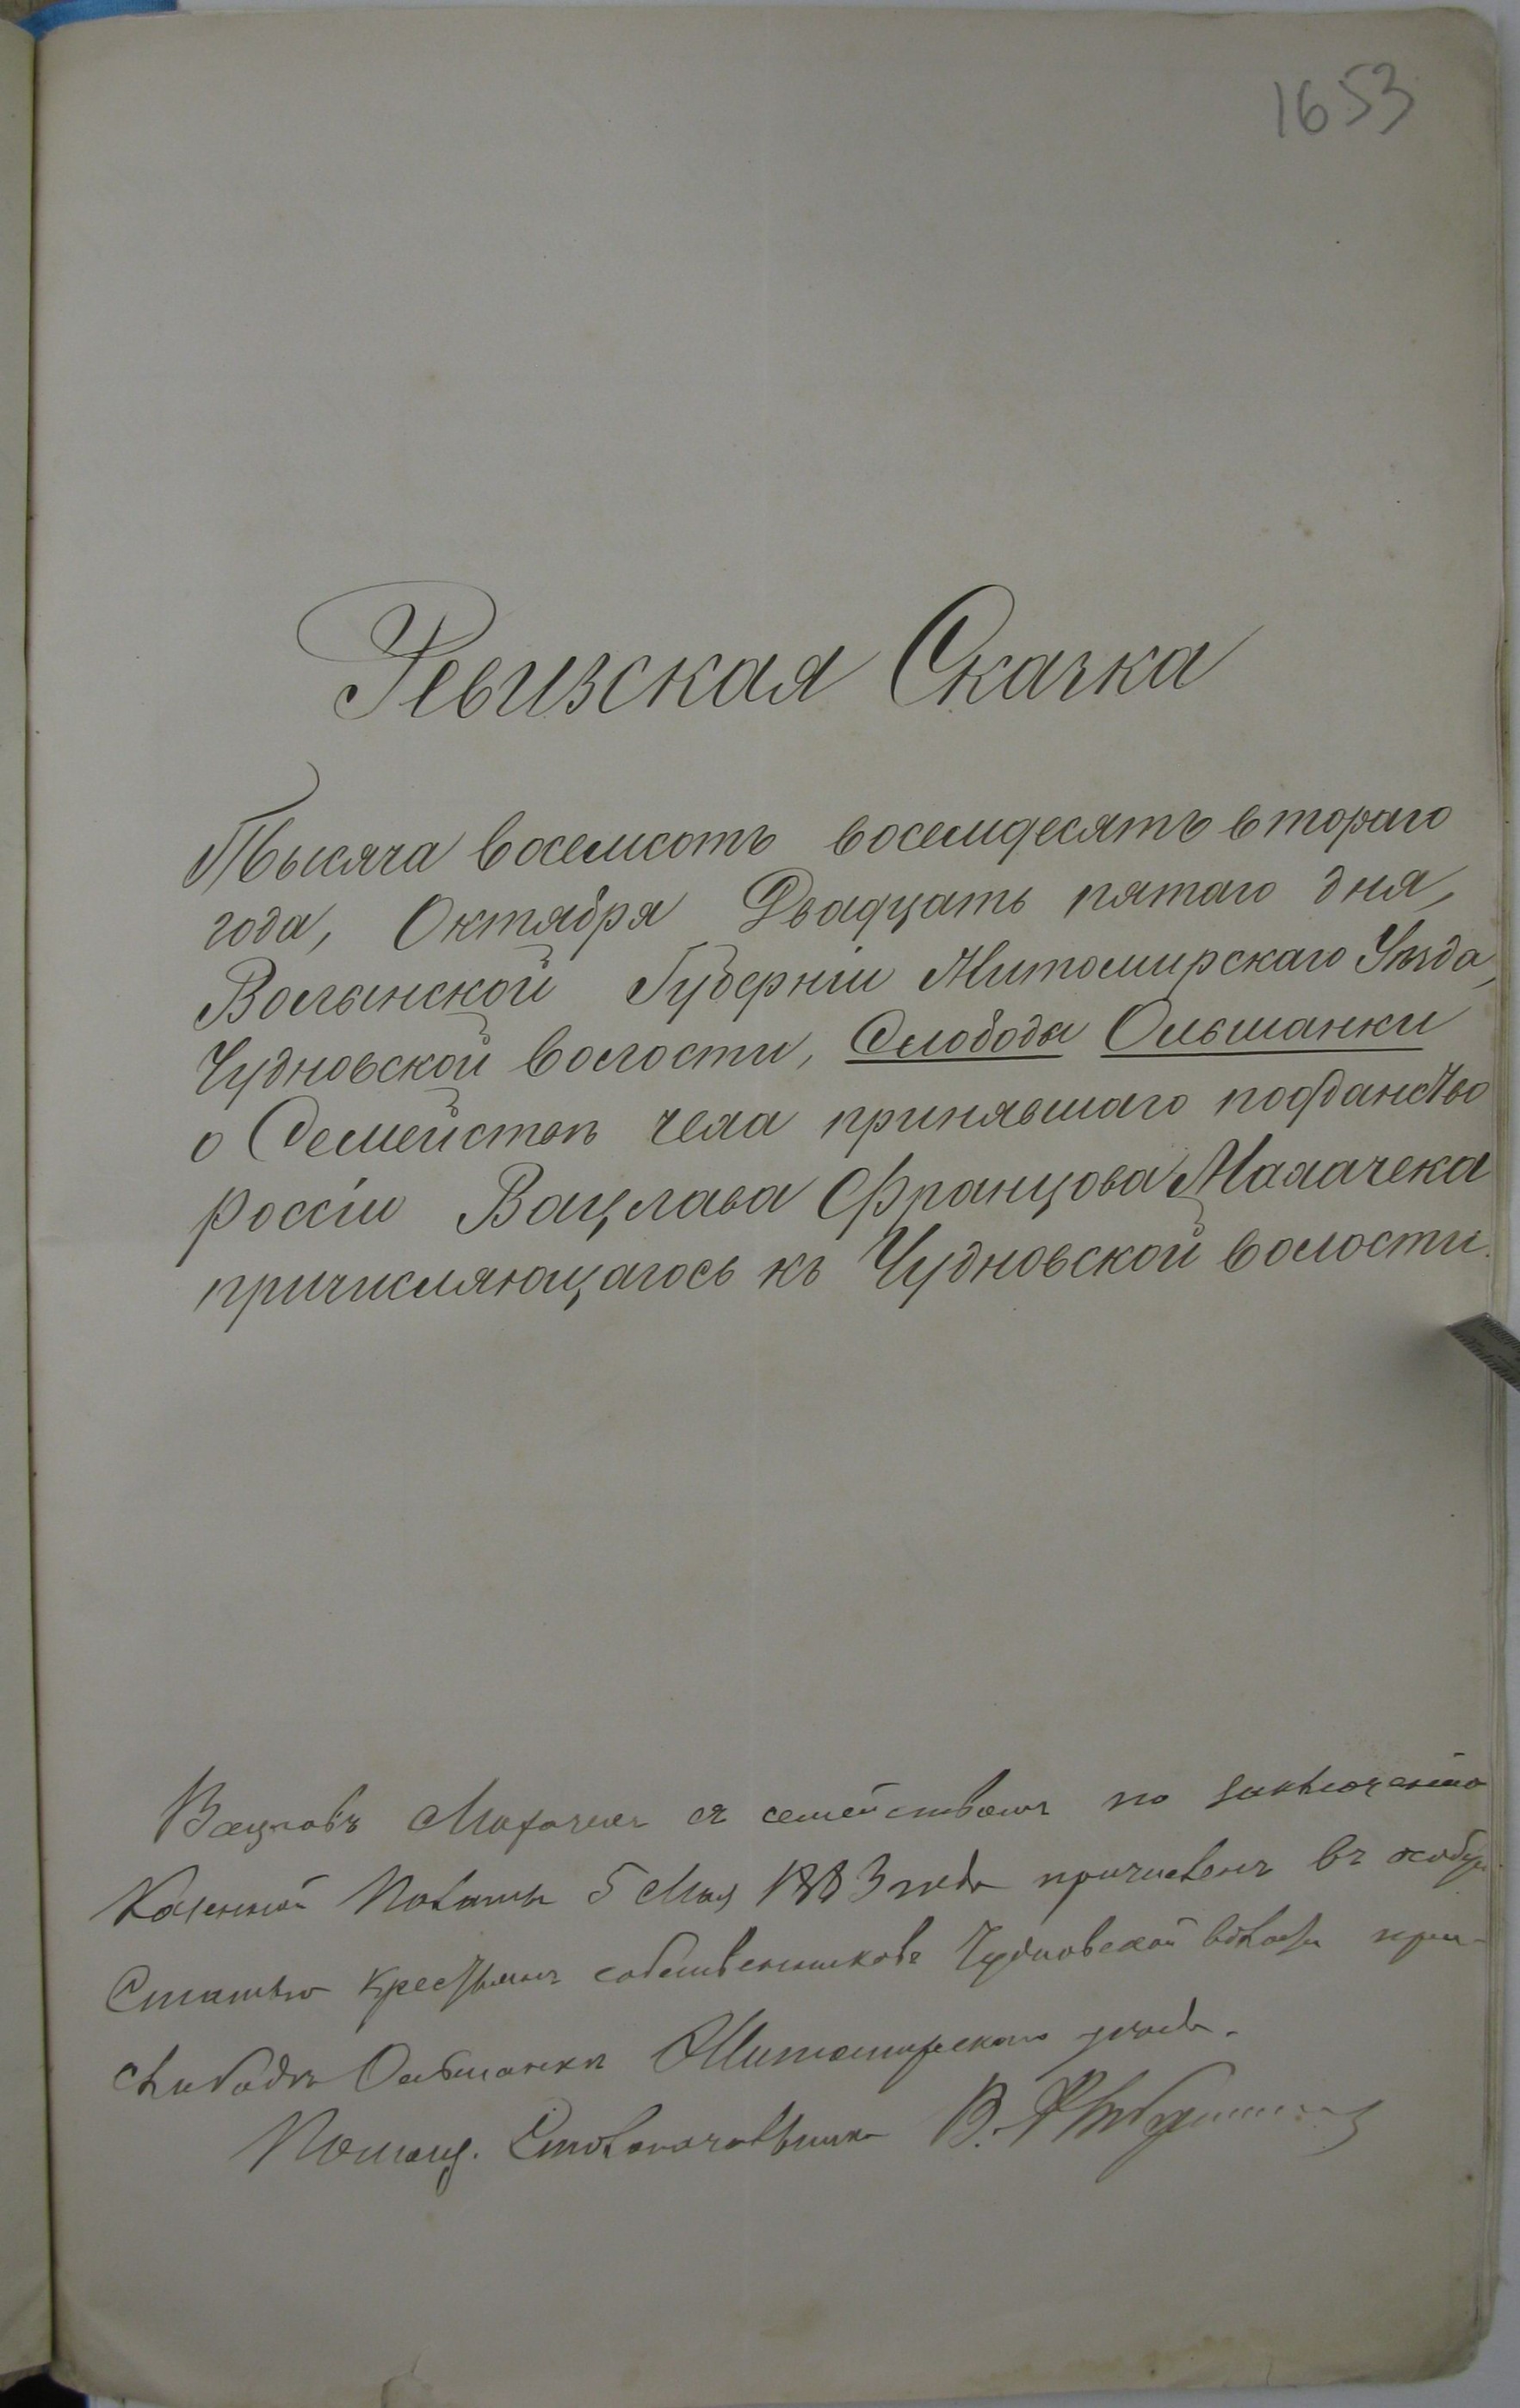 1653
Ревизская Сказка
Тысяча восемсотъ восемдесятъ втораго
года, Октября Двадцать пятаго дня,
Волынской Губерніи Житомирскаго Уѣзда,
Чудновской волости, Слободы Ольшанки
о Семействѣ чеха принявшаго подданство
Россіи Вацлава Францова Малачека
причисляющагося къ Чудновской волости.
Вацлавъ съ семействомъ по заключенію
Казенной Палаты 5 Мая 1883 года причисленъ въ
Статью крестьянъ собственниковъ Чудновской волости при
слободѣ Ольшанкѣ Житомирскаго уѣзда.
Помощ. Столоначальника В.